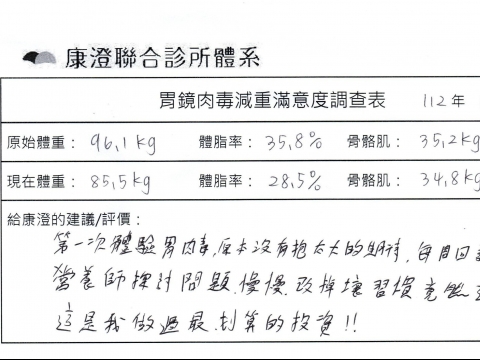 康澄聯合診所體系
胃鏡肉毒減重滿意度調查表 112年
原始體重： 96.1kg 體脂率： 35.8% 骨骼肌： 35.2kg
現在體重： 85.5kg 體脂率： 28.5% 骨骼肌： 34.8kg
給康澄的建議/評價：
第一次體驗胃肉毒，原本沒有抱太大的期待，每周回
營養師探討問題，慢慢改掉壞習慣竟然
這是我做過最划算的投資!!